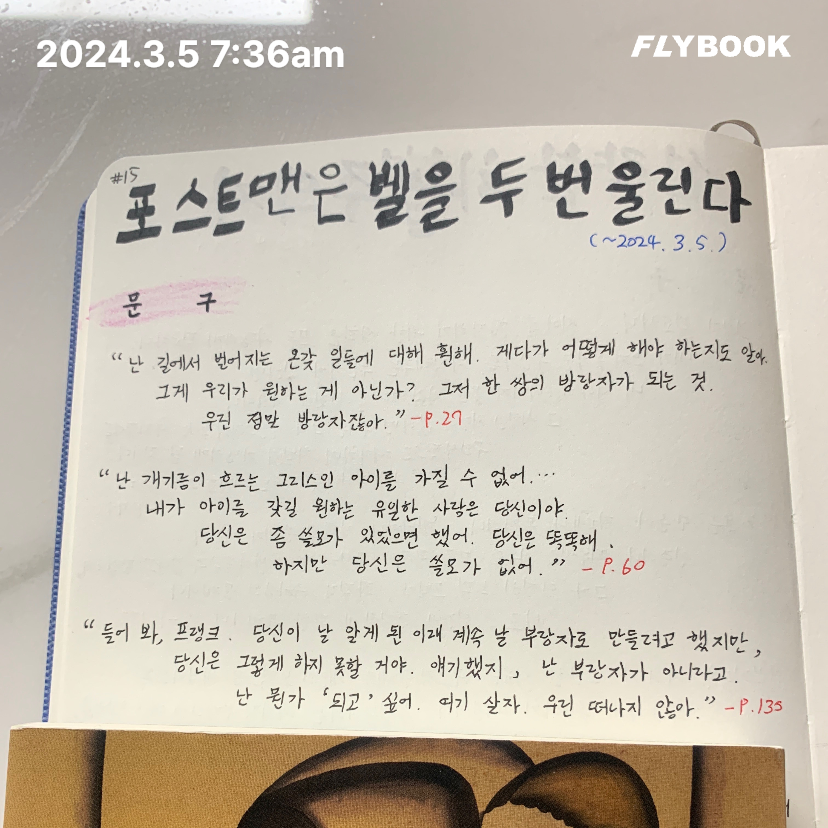 2024.3.5 7:36am
FLYBOOK
#15
포스트맨은 벨을 두 번 울린다
(~2024. 3. 5.)
문 구
“난 길에서 벌어지는 온갖 일들에 대해 훤해. 게다가 어떻게 해야 하는지도 알아.
그게 우리가 원하는 게 아닌가? 그저 한 쌍의 방랑자가 되는 것.
우린 정말 방랑자잖아.” -P.27
“난 개기름이 흐르는 그리스인 아이를 가질 수 없어….
내가 아이를 갖길 원하는 유일한 사람은 당신이야.
당신은 좀 쓸모가 있었으면 했어. 당신은 똑똑해.
하지만 당신은 쓸모가 없어.” - P.60
“들어 봐, 프랭크. 당신이 날 알게 된 이래 계속 날 부랑자로 만들려고 했지만,
당신은 그렇게 하지 못할 거야. 얘기했지, 난 부랑자가 아니라고.
난 뭔가 ‘되고’ 싶어. 여기 살자. 우린 떠나지 않아.” -P.135